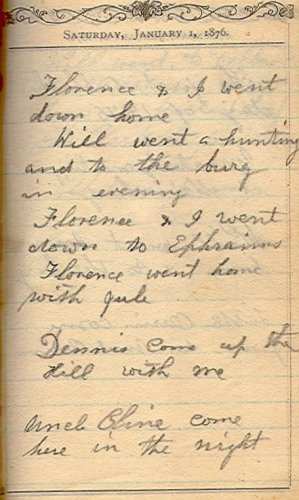 SATURDAY, JANUARY 1, 1876.
Florence & I went
down home
Will went a hunting
and to the burg
in evening
Florence & I went
down to Ephraims
Florence went home
with Jule
Dennis come up the
Hill with me
Uncl Cline come
here in the night